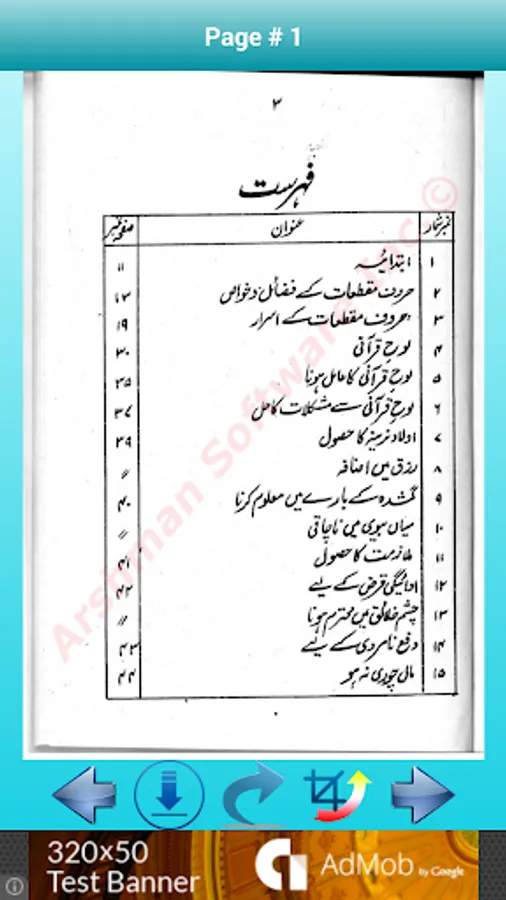 Page # 1
۳
فہرست
نمبر شمار عنوان صفحہ نمبر
۱ ابتدائیہ ۱۱
۲ حروف مقطعات کے فضائل و خواص ۱۳
۳ حروف مقطعات کے اسرار ۱۹
۴ لوح قرآنی ۳۰
۵ لوح قرآنی کا عامل ہونا ۳۵
۶ لوح قرآنی سے مشکلات کا حل ۳۷
۷ اولاد نرینہ کا حصول ۳۹
۸ رزق میں اضافہ //
۹ گمشدہ کے بارے میں معلوم کرنا ۴۰
۱۰ میاں بیوی میں ناچاقی //
۱۱ ملازمت کا حصول ۴۱
۱۲ ادائیگی قرض کے لیے ۴۲
۱۳ چشم خلائق میں محترم ہونا //
۱۴ دفع نامردی کے لیے ۴۳
۱۵ مال چوری نہ ہو ۴۴
Arshman Software Inc. ©
320×50
Test Banner
AdMob by Google